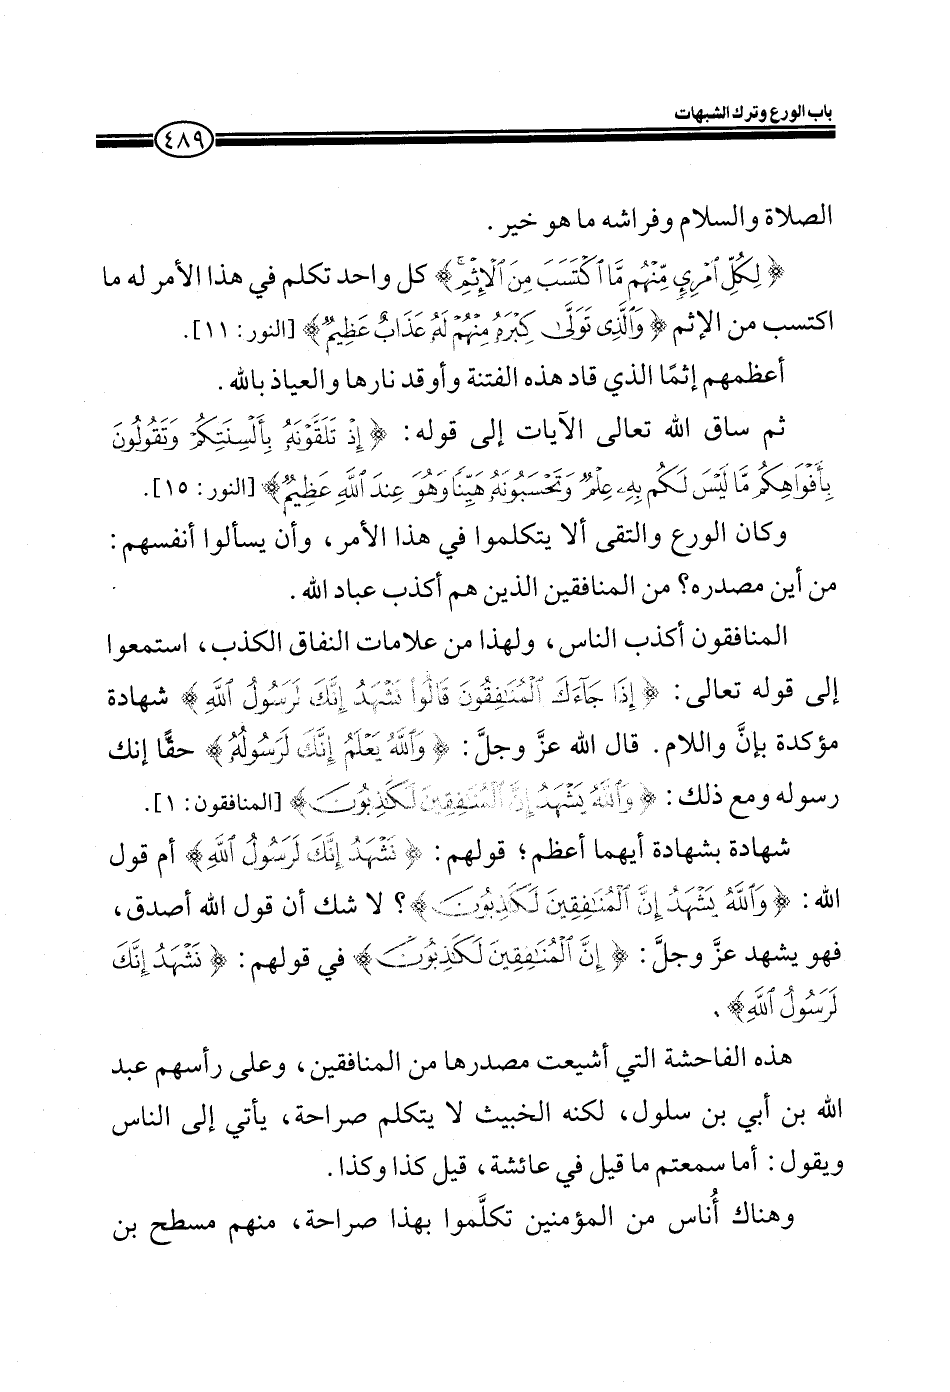 باب الورع وترك الشبهات
٤٨٩
الصلاة والسلام وفراشه ما هو خير .
﴿ لِكُلِّ ٱمْرِيٍٕ مِّنْهُم مَّا ٱكْتَسَبَ مِنَ ٱلْإِثْمِ ۚ ﴾ كل واحد تكلم في هذا الأمر له ما
اكتسب من الإثم ﴿ وَٱلَّذِى تَوَلَّىٰ كِبْرَهُۥ مِنْهُمْ لَهُۥ عَذَابٌ عَظِيمٌ ﴾ [النور: ١١].
أعظمهم إثمًا الذي قاد هذه الفتنة وأوقد نارها والعياذ بالله .
ثم ساق الله تعالى الآيات إلى قوله: ﴿ إِذْ تَلَقَّوْنَهُۥ بِأَلْسِنَتِكُمْ وَتَقُولُونَ
بِأَفْوَاهِكُم مَّا لَيْسَ لَكُم بِهِۦ عِلْمٌ وَتَحْسَبُونَهُۥ هَيِّنًا وَهُوَ عِندَ ٱللَّهِ عَظِيمٌ ﴾ [النور: ١٥].
وكان الورع والتقى ألا يتكلموا في هذا الأمر، وأن يسألوا أنفسهم:
من أين مصدره؟ من المنافقين الذين هم أكذب عباد الله .
المنافقون أكذب الناس، ولهذا من علامات النفاق الكذب، استمعوا
إلى قوله تعالى: ﴿ إِذَا جَآءَكَ ٱلْمُنَٰفِقُونَ قَالُوا۟ نَشْهَدُ إِنَّكَ لَرَسُولُ ٱللَّهِ ﴾ شهادة
مؤكدة بإنَّ واللام. قال الله عزَّ وجلَّ: ﴿ وَٱللَّهُ يَعْلَمُ إِنَّكَ لَرَسُولُهُۥ ﴾ حقًّا إنك
رسوله ومع ذلك: ﴿ وَٱللَّهُ يَشْهَدُ إِنَّ ٱلْمُنَٰفِقِينَ لَكَٰذِبُونَ ﴾ [المنافقون: ١].
شهادة بشهادة أيهما أعظم؛ قولهم: ﴿ نَشْهَدُ إِنَّكَ لَرَسُولُ ٱللَّهِ ﴾ أم قول
الله: ﴿ وَٱللَّهُ يَشْهَدُ إِنَّ ٱلْمُنَٰفِقِينَ لَكَٰذِبُونَ ﴾؟ لا شك أن قول الله أصدق،
فهو يشهد عزَّ وجلَّ: ﴿ إِنَّ ٱلْمُنَٰفِقِينَ لَكَٰذِبُونَ ﴾ في قولهم: ﴿ نَشْهَدُ إِنَّكَ
لَرَسُولُ ٱللَّهِ ﴾ .
هذه الفاحشة التي أشيعت مصدرها من المنافقين، وعلى رأسهم عبد
الله بن أبي بن سلول، لكنه الخبيث لا يتكلم صراحة، يأتي إلى الناس
ويقول: أما سمعتم ما قيل في عائشة، قيل كذا وكذا.
وهناك أُناس من المؤمنين تكلَّموا بهذا صراحة، منهم مسطح بن